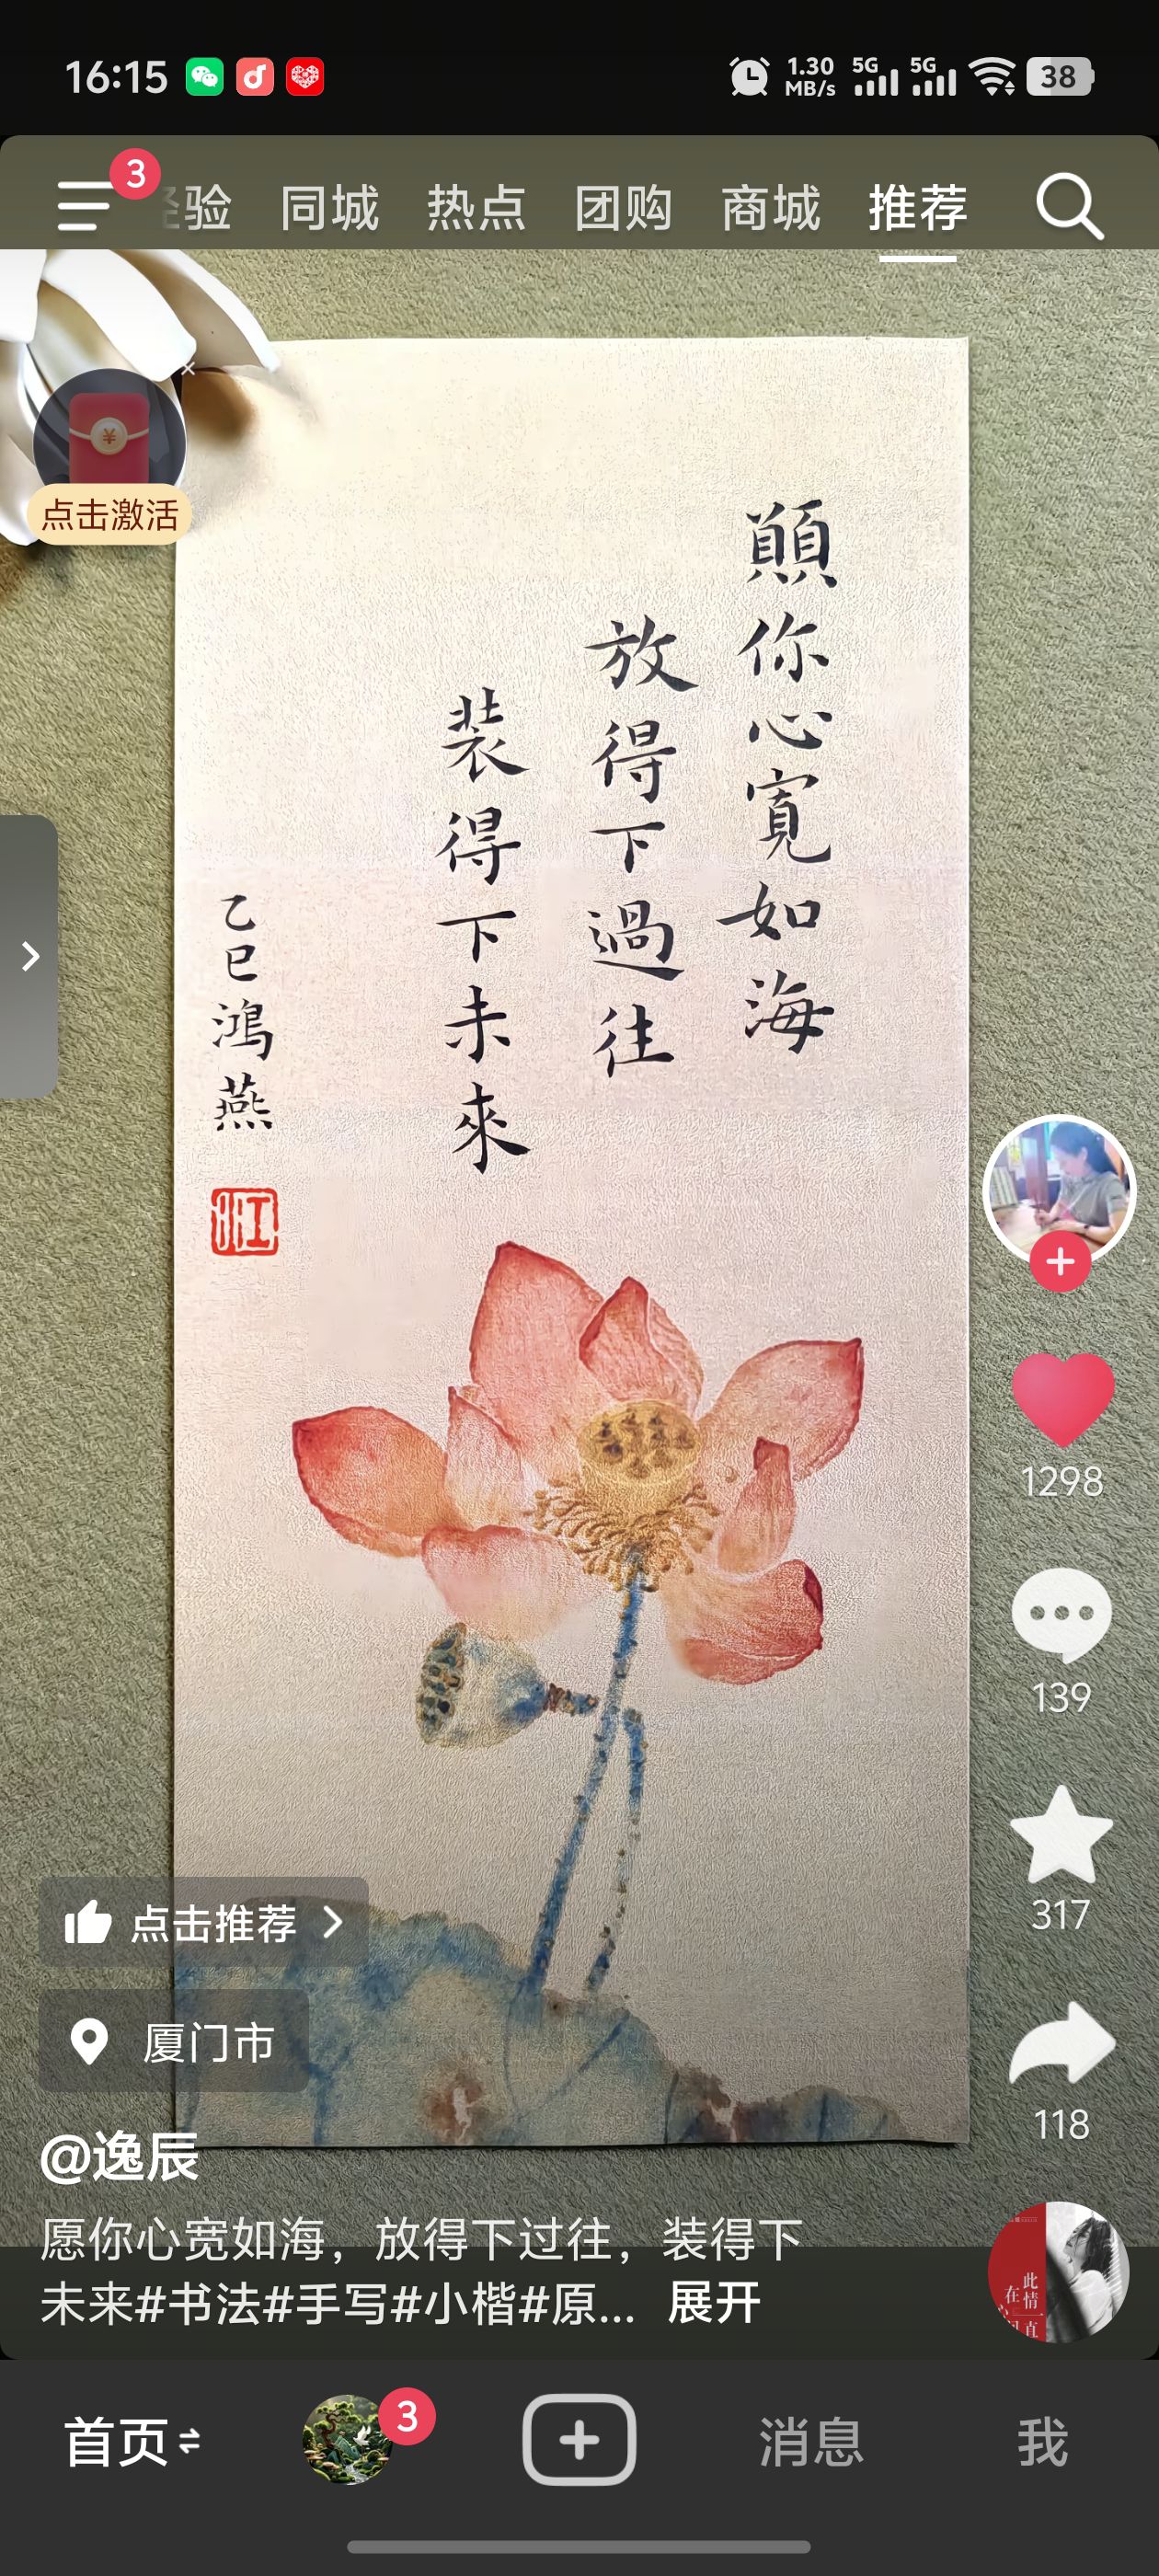 16:15
1.30 MB/s
5G
5G
38
3
验 同城 热点 团购 商城 推荐
点击激活
顚你心寬如海
放得下過往
装得下未來
乙巳鴻燕
江
1298
139
317
118
点击推荐
厦门市
@逸辰
愿你心宽如海，放得下过往，装得下
未来#书法#手写#小楷#原... 展开
此情一直
在
首页
3
消息
我